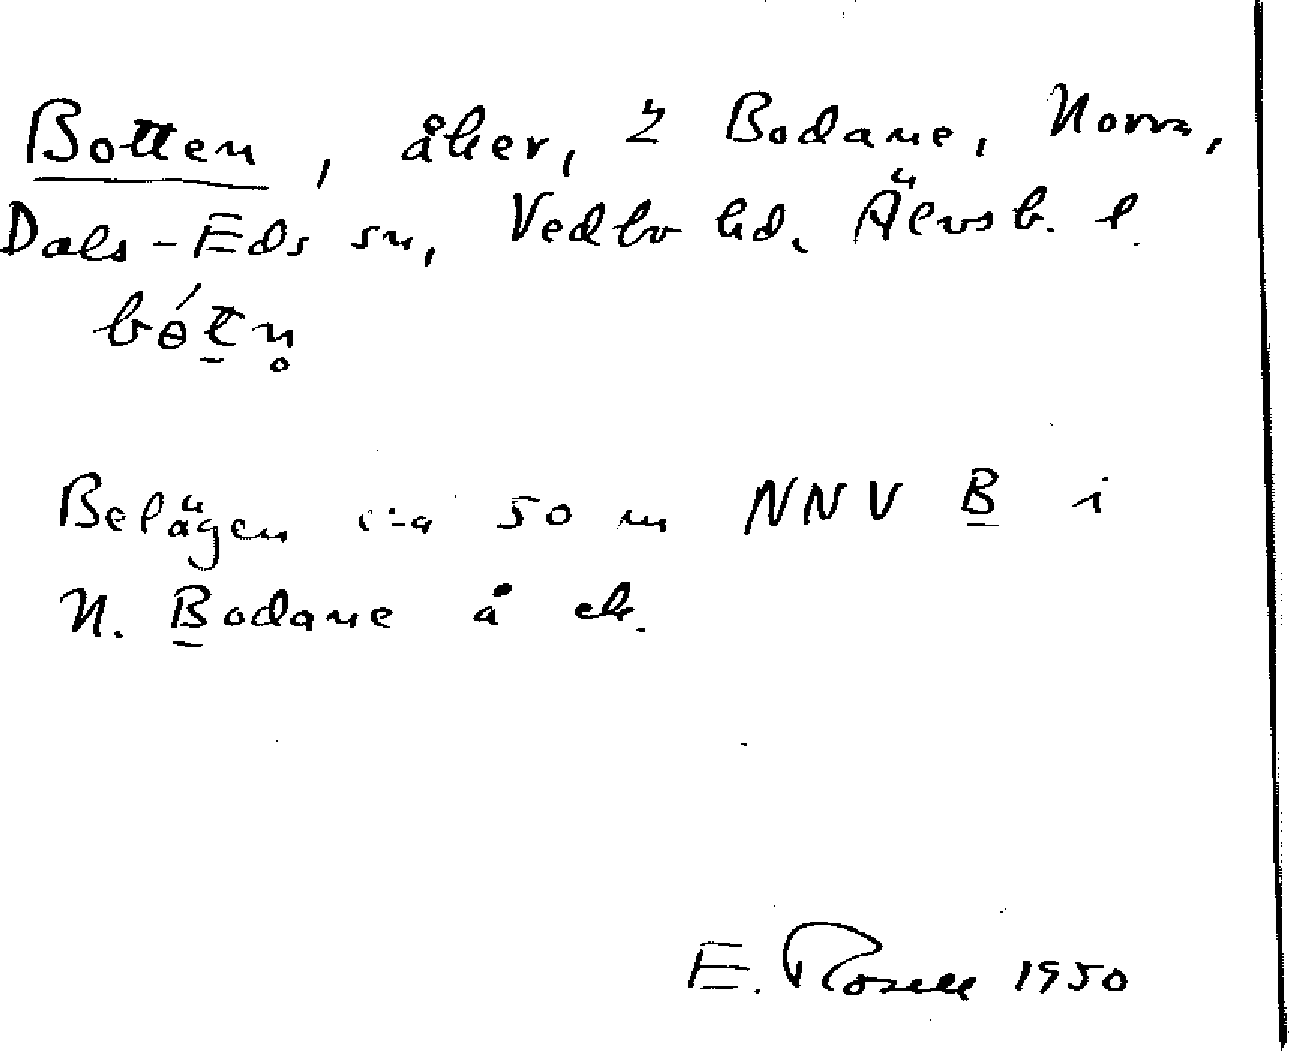 Botten, åker, 2 Bodane, Norra,
Dals-Eds sn, Vedbo hd. Älvsb. l.
bót̲n̥
Belägen c:a 50 m NNV B i
N. Bodane å ek.
E. Rosell 1950